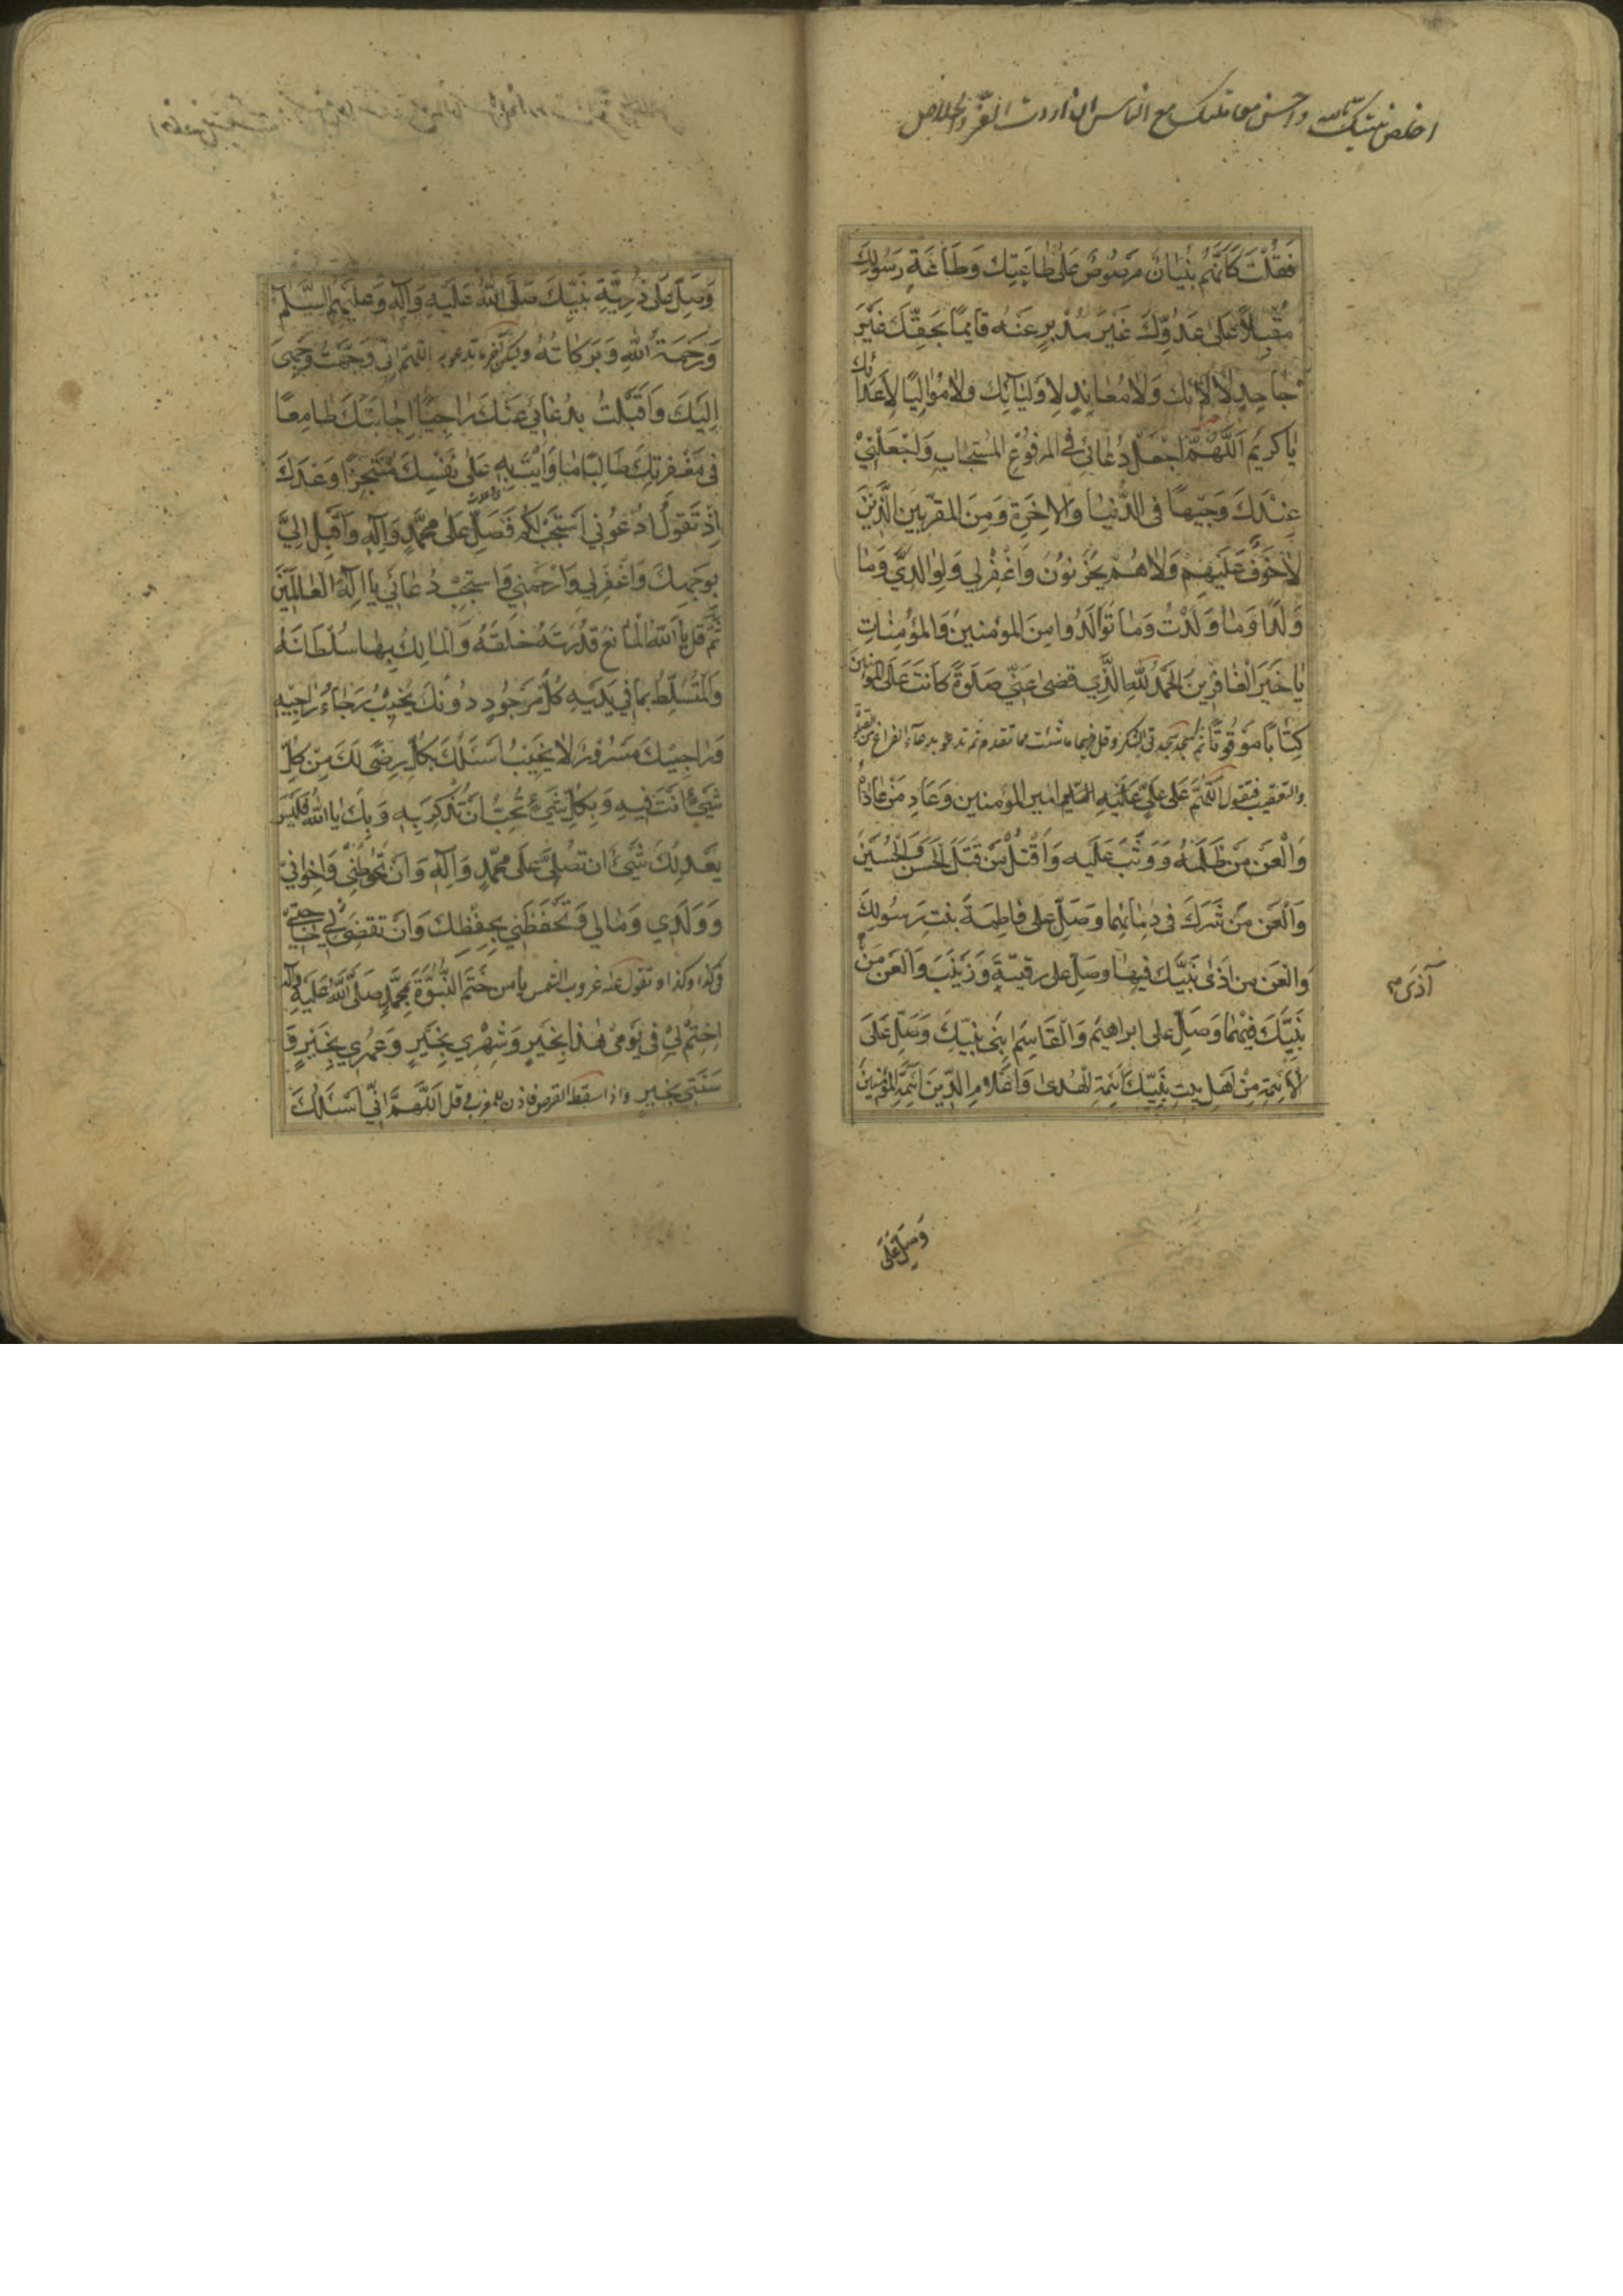 اخلص نيتك لله واحسن معاملتك مع الناس ان اردت العز والخلاص
فَقُلْتَ كَاَنَّهُمْ بُنْيَانٌ مَرْصُوصٌ عَلَى طَاعَتِكَ وَطَاعَةِ رَسُولِكَ
مُقْبِلًا عَلَى عَدُوِّكَ غَيْرَ مُدْبِرٍ عَنْهُ قَائِمًا بِحَقِّكَ غَيْرَ
جَاحِدٍ لِآلَائِكَ وَلَا مُعَانِدٍ لِاَوْلِيَائِكَ وَلَا مُوَالِيًا لِاَعْدَائِكَ
يَا كَرِيمُ اَللَّهُمَّ اجْعَلْ دُعَائِي فِي الْمَرْفُوعِ الْمُسْتَجَابِ وَاجْعَلْنِي
عِنْدَكَ وَجِيهًا فِي الدُّنْيَا وَالْاخِرَةِ وَمِنَ الْمُقَرَّبِينَ الَّذِينَ
لَا خَوْفٌ عَلَيْهِمْ وَلَا هُمْ يَحْزَنُونَ وَاغْفِرْ لِي وَلِوَالِدَيَّ وَمَا
وَلَدَا وَمَا وَلَدْتُ وَمَا تَوَالَدُوا مِنَ الْمُؤْمِنِينَ وَالْمُؤْمِنَاتِ
يَا خَيْرَ الْغَافِرِينَ اَلْحَمْدُ لِلَّهِ الَّذِي قَضَى عَنِّي صَلَوةً كَانَتْ عَلَى الْمُؤْمِنِينَ
كِتَابًا مَوْقُوتًا ثم تسجد سجدتي الشكر وقل فيهما ما شئت مما تقدم ثم تدعو بدعاء الفراغ من الصلوة
والتعقيب فتقول اللهم صل على عَلِيٍّ عَلَيْهِ السَّلَمُ امير المؤمنين وَعَادِ مَنْ عَادَاهُ
وَالْعَنْ مَنْ ظَلَمَهُ وَوَثَبَ عَلَيْهِ وَاقْتُلْ مَنْ قَتَلَ الْحَسَنَ وَالْحُسَيْنَ
وَالْعَنْ مَنْ شَرَكَ فِي دِمَائِهِمَا وَصَلِّ عَلَى فَاطِمَةَ بِنْتِ رَسُولِكَ
وَالْعَنْ مَنْ اَذَى نَبِيَّكَ فِيهَا وَصَلِّ عَلَى رُقَيَّةَ وَزَيْنَبَ وَالْعَنْ مَنْ
آذَى
نَبِيَّكَ فِيهِمَا وَصَلِّ عَلَى ابراهيم وَالْقَاسِمِ ابْنَيْ نَبِيِّكَ وَصَلِّ عَلَى
الْاَئِمَّةِ مِنْ اَهْلِ بَيْتِ نَبِيِّكَ اَئِمَّةِ الْهُدَى وَاَعْلَامِ الدِّينِ اَئِمَّةِ الْمُؤْمِنِينَ
وَصَلِّ عَلَى
وَصَلِّ عَلَى ذُرِّيَّةِ نَبِيِّكَ صَلَّى اللهُ عَلَيْهِ وَآلِهِ وَعَلَيْهِمُ السَّلَمُ
وَرَحْمَةُ اللهِ وَبَرَكَاتُهُ وليكن آخر ما تدعو به اللهم اِنِّي وَجَّهْتُ وَجْهِيَ
اِلَيْكَ وَاَقْبَلْتُ بِدُعَائِي عَلَيْكَ رَاجِيًا اِجَابَتَكَ طَامِعًا
فِي مَغْفِرَتِكَ طَالِبًا مَا وَاَيْتَ بِهِ عَلَى نَفْسِكَ مُتَنَجِّزًا وَعْدَكَ
اِذْ تَقُولُ ادْعُونِي اَسْتَجِبْ لَكُمْ فَصَلِّ عَلَى مُحَمَّدٍ وَآلِهِ وَاَقْبِلْ اِلَيَّ
بِوَجْهِكَ وَاغْفِرْ لِي وَارْحَمْنِي وَاسْتَجِبْ دُعَائِي يَا اِلَهَ الْعَالَمِينَ
ثُمَّ قل يَا اَللهُ الْمَانِعُ قُدْرَتَهُ خَلْقَهُ وَالْمَالِكُ بِهَا سُلْطَانَهُ
وَالْمُتَسَلِّطُ بِمَا فِي يَدَيْهِ كُلُّ مَرْجُوٍّ دُونَكَ يُخَيِّبُ رَجَاءَ رَاجِيهِ
وَرَاجِيكَ مَسْرُورٌ لَا يَخِيبُ اَسْئَلُكَ بِكُلِّ رِضًى لَكَ مِنْ كُلِّ
شَيْءٍ اَنْتَ فِيهِ وَبِكُلِّ شَيْءٍ تُحِبُّ اَنْ تُذْكَرَ بِهِ وَبِكَ يَا اَللهُ فَلَيْسَ
يَعْدِلُكَ شَيْءٌ اَنْ تُصَلِّيَ عَلَى مُحَمَّدٍ وَآلِهِ وَاَنْ تَحُوطَنِي وَاِخْوَانِي
وَوَلَدِي وَمَالِي وَتَحْفَظَنِي بِحِفْظِكَ وَاَنْ تَقْضِيَ لِي حَاجَتِي
في كذا وكذا وتقول عند غروب الشمس يَا مَنْ خَتَمَ النُّبُوَّةَ بِمُحَمَّدٍ صَلَّى اللهُ عَلَيْهِ وَآلِهِ
اِخْتِمْ لِي فِي يَوْمِي هَذَا بِخَيْرٍ وَشَهْرِي بِخَيْرٍ وَعُمُرِي بِخَيْرٍ وَ
سَنَتِي بِخَيْرٍ واذا سقط القرص فاذن للمغرب و قل اَللَّهُمَّ اِنِّي اَسْئَلُكَ